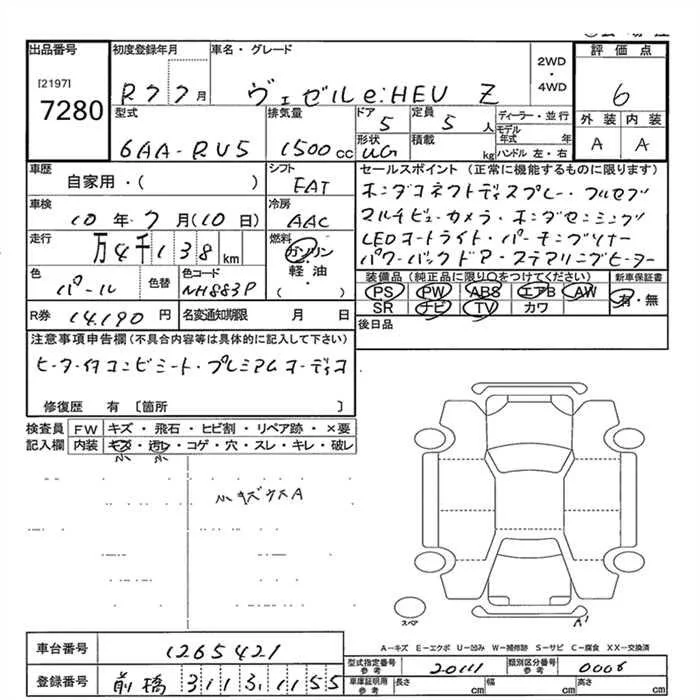 出品番号 初度登録年月 車名・グレード 2WD・4WD 評価点
[2197]
7280 R7 7月 ヴェゼル e:HEV Z 6
型式 排気量 ドア 定員 ディーラー・並行 外装 内装
6AA-RU5 1500cc 5 5人 モデル年式 年 A A
形状 積載 kg ハンドル 左・右
UG
車歴 シフト セールスポイント (正常に機能するものに限ります)
自家用・( ) FAT ホンダコネクトディスプレー・フルセグ
車検 冷房 マルチビューカメラ・ホンダセンシング
10年 7月(10日) AAC LEDオートライト・パーキングソナー
走行 燃料 パワーバックドア・ステアリングヒーター
万4千138km ガソリン・軽油・( )
色 色替 色コード 装備品(純正品に限り○をつけてください) 新車保証書
パール NH883P PS PW ABS エアB AW 有・無
SR ナビ TV カワ
R券 14190円 名変通知期限 月 日 後日品
注意事項申告欄(不具合内容等は具体的に記入して下さい)
ヒーター付コンビシート・プレミアムオーディオ
修復歴 有 [箇所 ]
検査員 FW キズ・飛石・ヒビ割・リペア跡・×要
記入欄 内装 キズ・汚レ・コゲ・穴・スレ・キレ・破レ
小 小
小キズウスA
スペア A'
A－キズ E－エクボ U－凹み W－補修跡 S－サビ C－腐食 XX－交換済
車台番号 1265421
型式指定番号 参考 20111 類別区分番号 参考 0006
登録番号 前橋 311 す1155
車庫証明用 参考 長さ cm 幅 cm 高さ cm